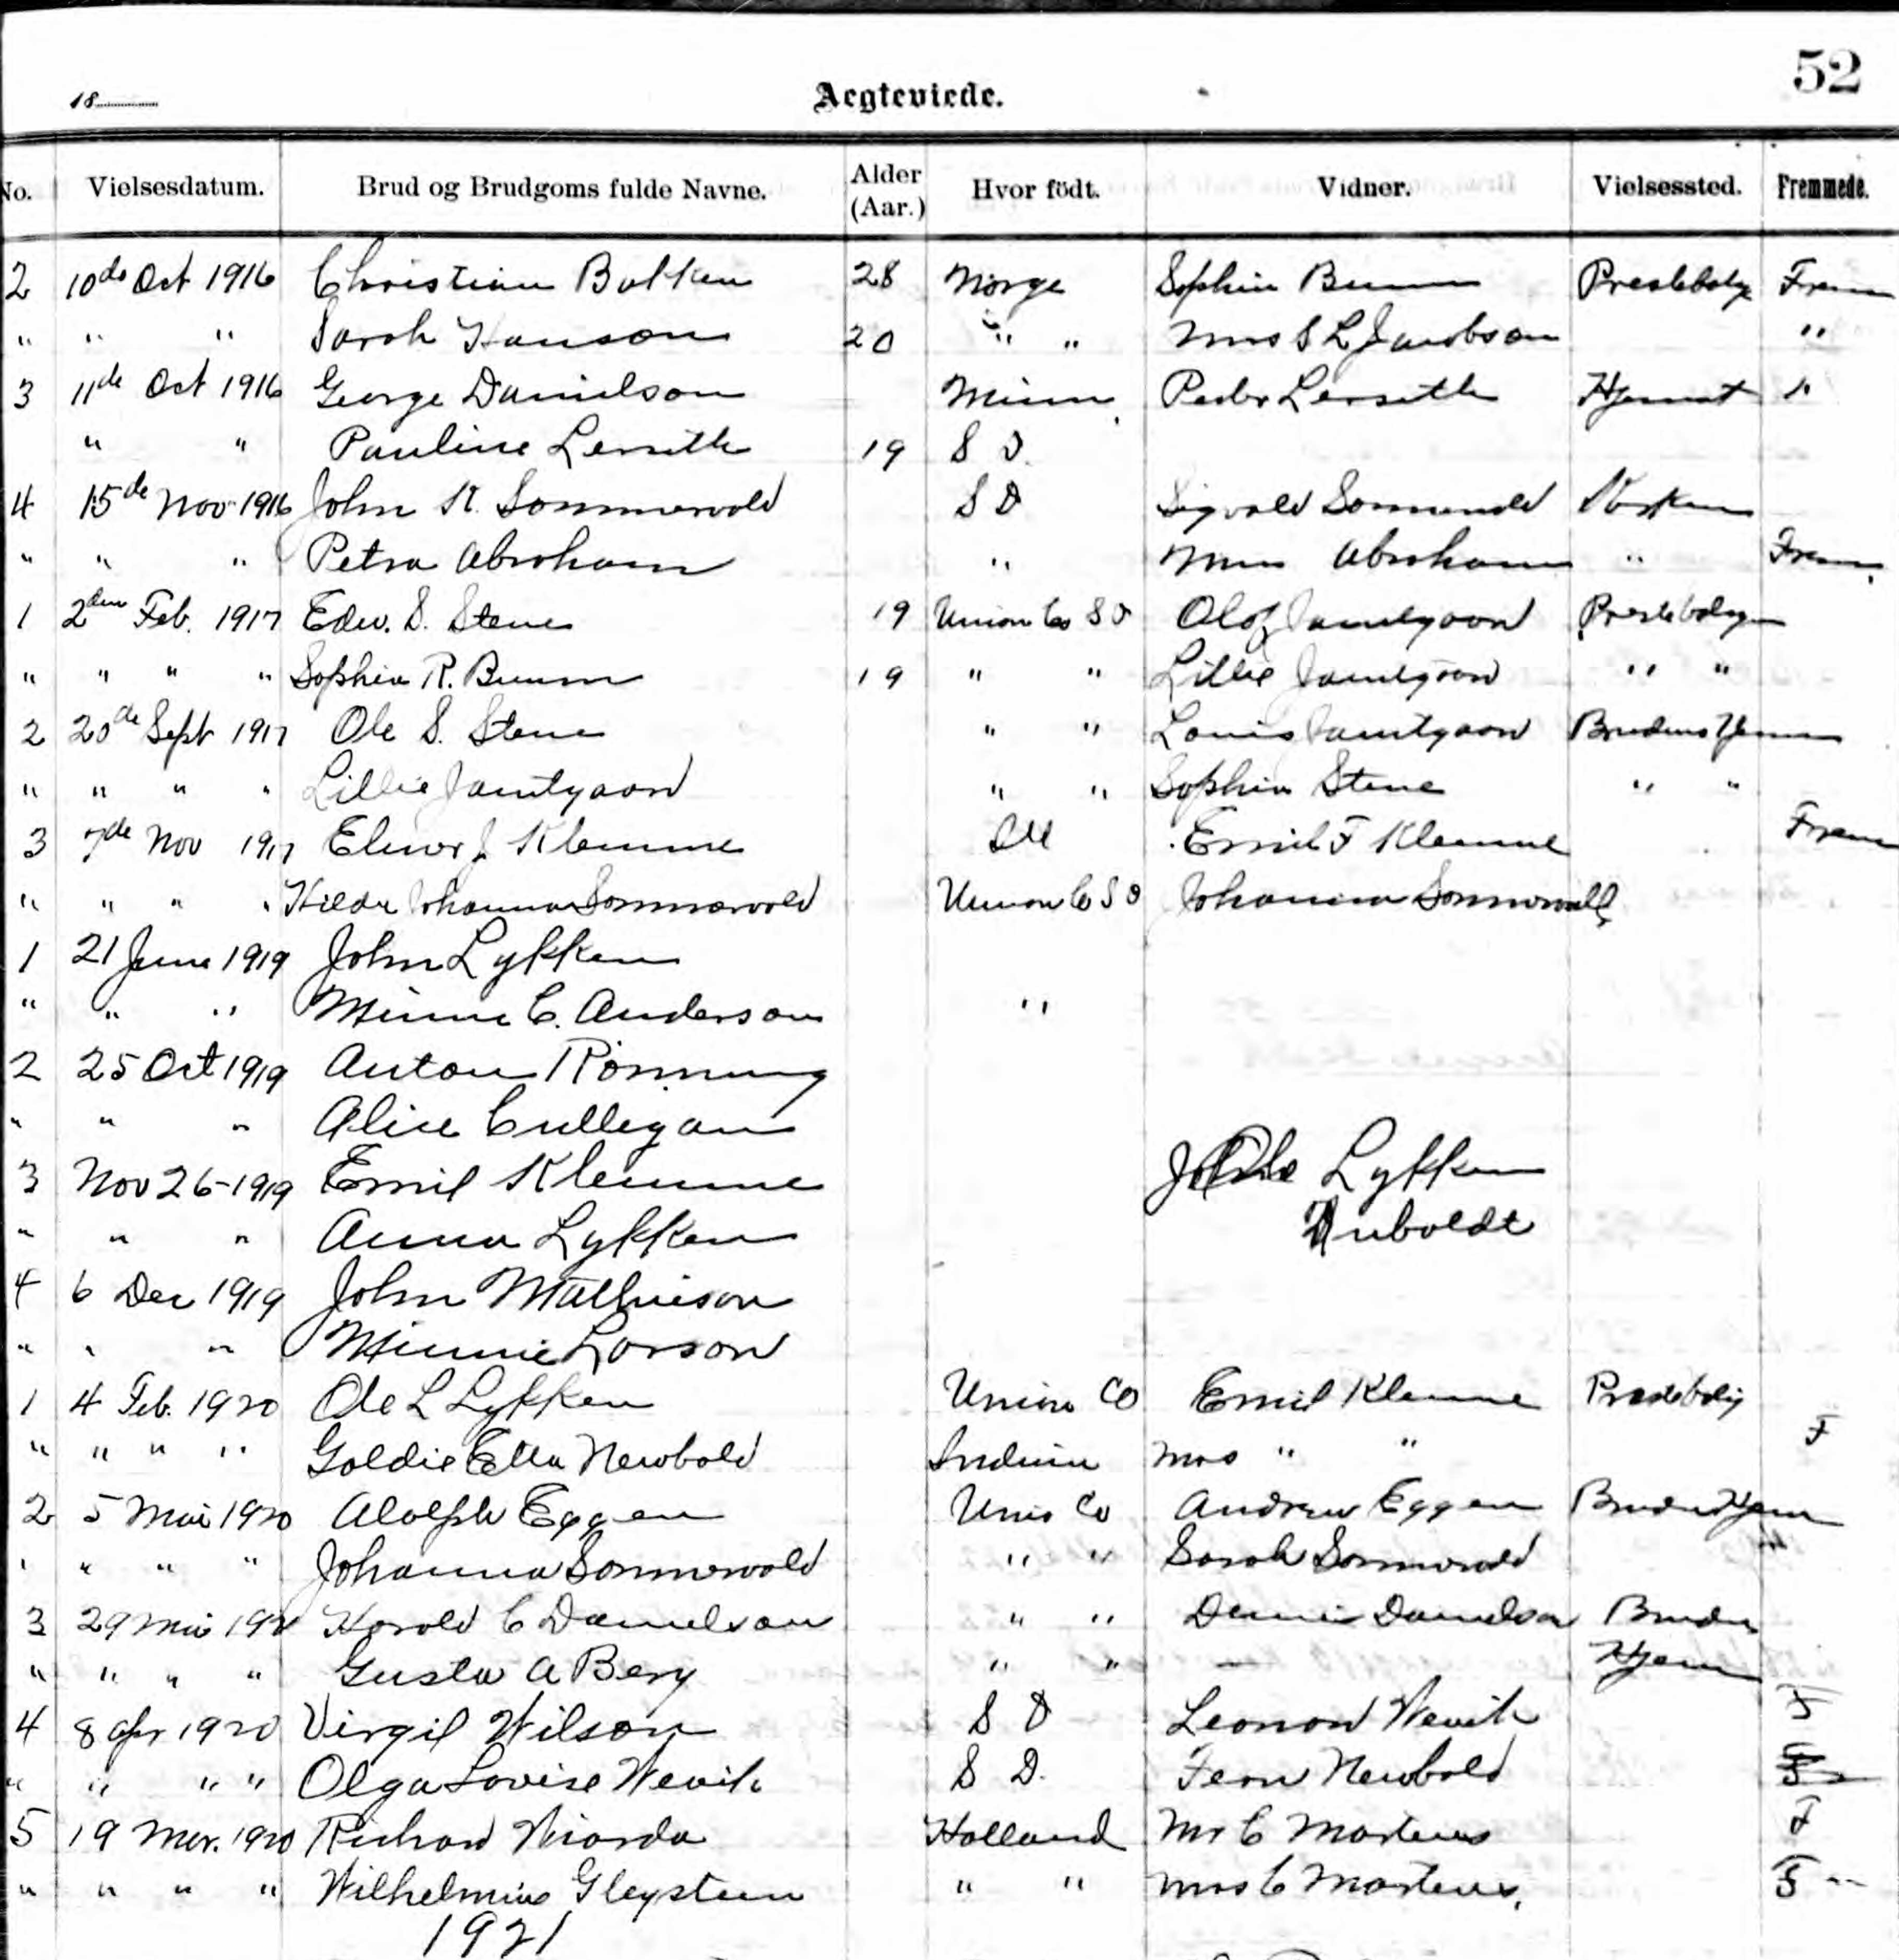 52
18
Aegteviede.
No. Vielsesdatum. Brud og Brudgoms fulde Navne. Alder (Aar.) Hvor födt. Vidner. Vielsessted. Fremmede.
2 10de Oct 1916 Christian Bakken 28 Norge Sophia Bruum Prestebolig Frem
" " " Sarah Hanson 20 " " Mrs S L Jacobson "
3 11de Oct 1916 George Danielson Minn. Peder Lerseth Hjemmet "
" " Pauline Lerseth 19 S D.
4 15de Nov 1916 John K. Sommervold S D Sigvald Sommervold Kirken
" " " Petra Abraham " Abraham " Frem.
1 2den Feb. 1917 Edw. S. Stene 19 Union Co S D Olof Jamtgaard Prestebolig
" " " " Sophia R. Bruum 19 " " Lillie Jamtgaard " "
2 20de Sept 1917 Ole S. Stene " " Louis Jamtgaard Brudens Hjem
" " " " Lillie Jamtgaard " " Sophia Stene " "
3 7de Nov 1917 Elmer J. Klemme Ill Emil F Klemme Frem
" " " " Hilda Johanna Sommervold Union Co S D Johanna Sommervold
1 21 June 1919 John Lykken
" " " Minnie C. Anderson "
2 25 Oct 1919 Anton Rönning
" " " Alice Culligan
3 Nov 26-1919 Emil Klemme Lykken
" " " Anna Lykken Duboldt
4 6 Dec 1919 John Mathieson
" " " Minnie Larson
1 4 Feb. 1920 Ole L Lykken Union Co Emil Klemme Prestebolig
" " " " Goldie Etta Newbold Indiana Mrs " " F
2 5 Mai 1920 Adolph Eggen Union Co Andrew Eggen Brudens Hjem
" " " " Johanna Sommervold " " Sarah Sommervold
3 29 192 Harold C Danielson " " Dennis Danielson Brudens
" " " " Gusta A Berg " " — Hjem
4 8 Apr 1920 Virgil Wilson S D Leonard Nevik F
" " " " Olga Lovise Nevik S D. Fern Newbold
5 19 Mar. 1920 Richard Holland Mr C Martens F
" " " " Wilhelmina Gleysteen " " Mrs C Martens. F
1921